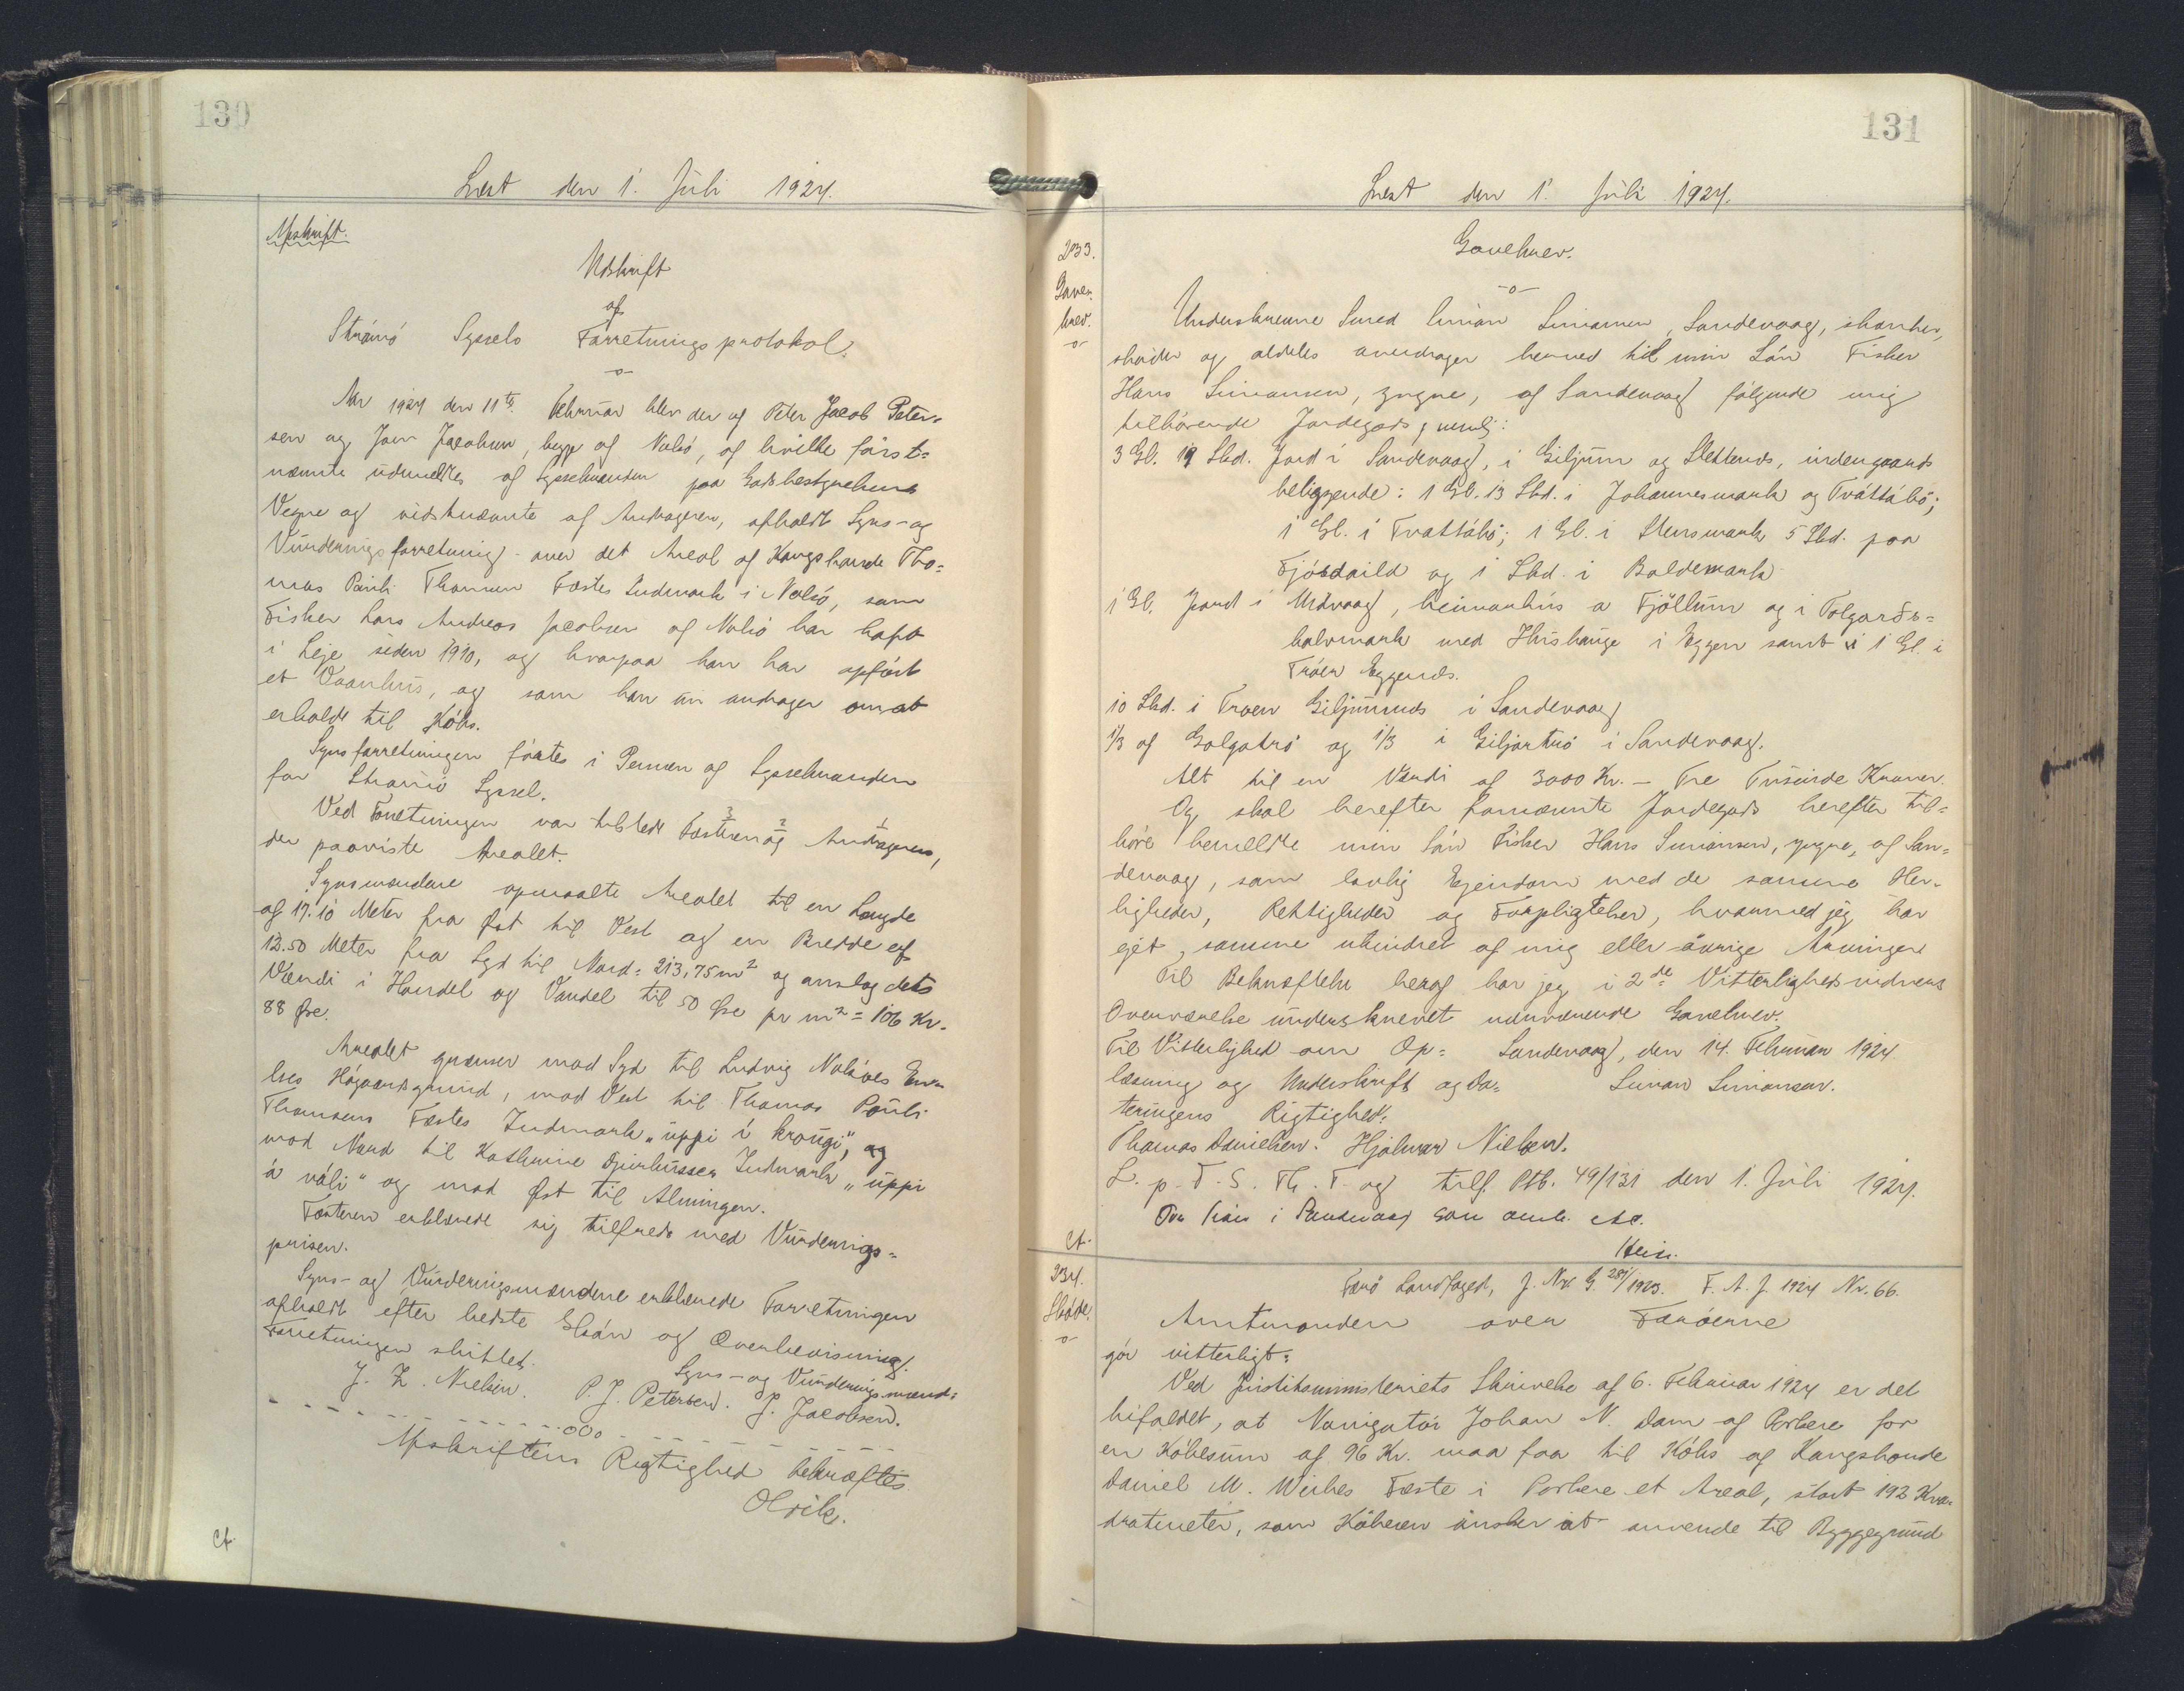 130
Læst den 1. Juli 1924.
Afskrift.
Udskrift
af
Strømø Syssels Forretningsprotokol.
-o-
Aar 1924 den 11te Februar blev der af Peter Jacob Peter-
sen og Joen Jacobsen, begge af Nolsø, af hvilke først-
nævnte udmeldtes af Sysselmanden paa Godsbestyrelsens
Vegne og sidstnævnte af Andrageren, afholdt Syns- og
Vurderingsforretning over det Areal af Kongsbonde Tho-
mas Pauli Thomsen Fæstes Indmark i Nolsø, som
Fisker Lars Andreas Jacobsen af Nolsø har haft
i Leje siden 1910, og hvorpaa han har opført
et Vaanhus, og som han nu andrager om at
erholde til Købs.
Synsforretningen førtes i Pennen af Sysselmanden
for Strømø Syssel.
Ved Forretningen var tilstede Fæsteren og Andrageren,
der paaviste Arealet.
Synsmændene opmaalte Arealet til en Længde
af 17.10 Meter fra Øst til Vest og en Bredde af
12.50 Meter fra Syd til Nord = 213,75 m2 og anslog dets
Værdi i Handel og Vandel til 50 Øre pr m2 = 106 Kr.
88 Øre.
Arealet grænser mod Syd til Ludvig Nolsøes Enke
Høgaardsgrund, mod Vest til Thomas Pauli
Thomsens Fæstes Indmark "uppi i krougi", og
mod Nord til Kathrine Djurhussen Indmark "uppi
á váli" og mod Øst til Almingen.
Fæsteren erklærede sig tilfreds med Vurderings-
prisen.
Syns- og Vurderingsmændene erklærede Forretningen
afholdt efter bedste Skøn og Overbevisning.
Forretningen sluttet.
Syns- og Vurderingsmænd:
J. Z. Nielsen. P. J. Petersen. J. Jacobsen.
-------ooo-------
Afskriftens Rigtighed bekræftes
Olrik.
Ct.
131
Læst den 1. Juli 1924.
233.
Gave-
brev.
-o-
Gavebrev.
-o-
Underskrevne Smed Simon Simonsen, Sandevaag, skænker,
skøder og aldeles overdrager herved til min Søn Fisker
Hans Simonsen, yngre, af Sandevaag følgende mig
tilhørende Jordegods, nemlig:
3 Gl. 19 Skd. Jord i Sandevaag, i Giljum og Slettends, indengaards
beliggende: 1 Gl. 13 Skd. i Johannesmark og Tváttábø;
1 Gl. i Tvattábø; 1 Gl. i Stensmark 5 Skd. paa
Fjósdaild og 1 Skd. i Boldemark
1 Gl. Jord i Midvaag, heimanhus a Fjøllum og i Tolgards-
halvmark med Hushauge i Eggen samt i 1 Gl. i
Trøen Eggends.
10 Skd. i Troen Giljumends i Sandevaag
1/3 af Golgatrø og 1/3 i Giljartrø i Sandevaag.
Alt til en Værdi af 3000 Kr. - Tre Tusinde Kroner.
Og skal herefter fornævnte Jordegods herefter til-
høre bemeldte min Søn Fisker Hans Simonsen, yngre, af San-
devaag, som lovlig Ejendom med de samme Her-
ligheder, Rettigheder og Forpligtelser, hvormed jeg har
ejet samme uhindret af mig eller øvrige Arvinger
Til Bekræftelse heraf har jeg i 2de Vitterlighedsvidners
Overværelse underskrevet nærværende Gavebrev.
Til Vitterlighed om Op- Sandevaag, den 14. Februar 1924
læsning og Underskrift og Da- Simon Simonsen.
teringens Rigtighed:
Thomas Danielsen. Hjalmar Nielsen.
L. p. T. S. Th. F. og tilf. Ptb. 49/131 den 1. Juli 1924.
i Sandevaag
Ct.
234.
Skøde.
-o-
Færø Landfoged, J. Nr. G. 281/1923. F. A. J. 1924 Nr. 66.
Amtmanden over Færøerne
gør vitterligt:
Ved Justitsministeriets Skrivelse af 6. Februar 1924 er det
bifaldet, at Navigatør Johan N. Dam af Porkere for
en Købesum af 96 Kr. maa faa til Købs af Kongsbonde
Daniel M. Weihes Fæste i Porkere et Areal, stort 192 Kva-
dratmeter, som Køberen ønsker at anvende til Byggegrund